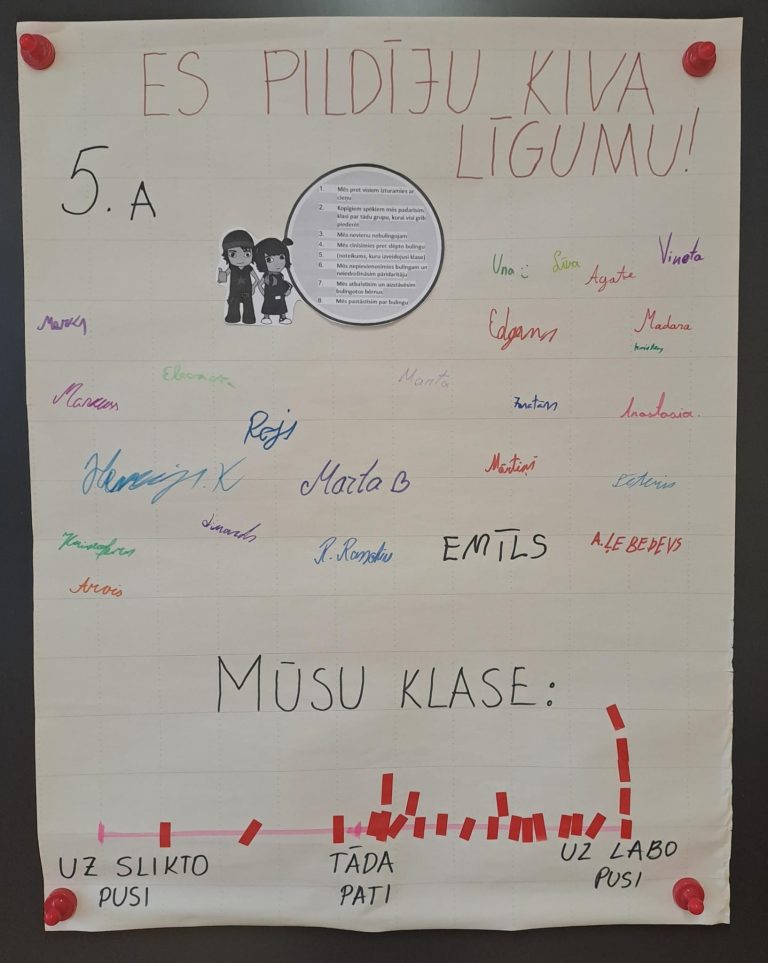 ES PILDĪJU KIVA
LĪGUMU!
5. A
1. Mēs pret visiem izturamies ar
cieņu
2. Kopīgiem spēkiem mēs padarīsim
klasi par tādu grupu, kurai visi grib
piederēt
3. Mēs nevienu nebulingojam
4. Mēs cīnīsimies pret slēpto bulingu
5. (noteikums, kuru izveidojusi klase)
6. Mēs nepievienosimies bulingam un
neiedrošināsim pāridarītāju
7. Mēs atbalstīsim un aizstāvēsim
bulingotos bērnus
8. Mēs pastāstīsim par bulingu
Una :) Līva Agate Vineta
Edgars Madara
Marta
Markuss
Anastasia.
Rojs
Mārtiņš
Marta B
EMĪLS
A. ĻEBEDEVS
Arvis
MŪSU KLASE:
UZ SLIKTO
PUSI
TĀDA
PATI
UZ LABO
PUSI